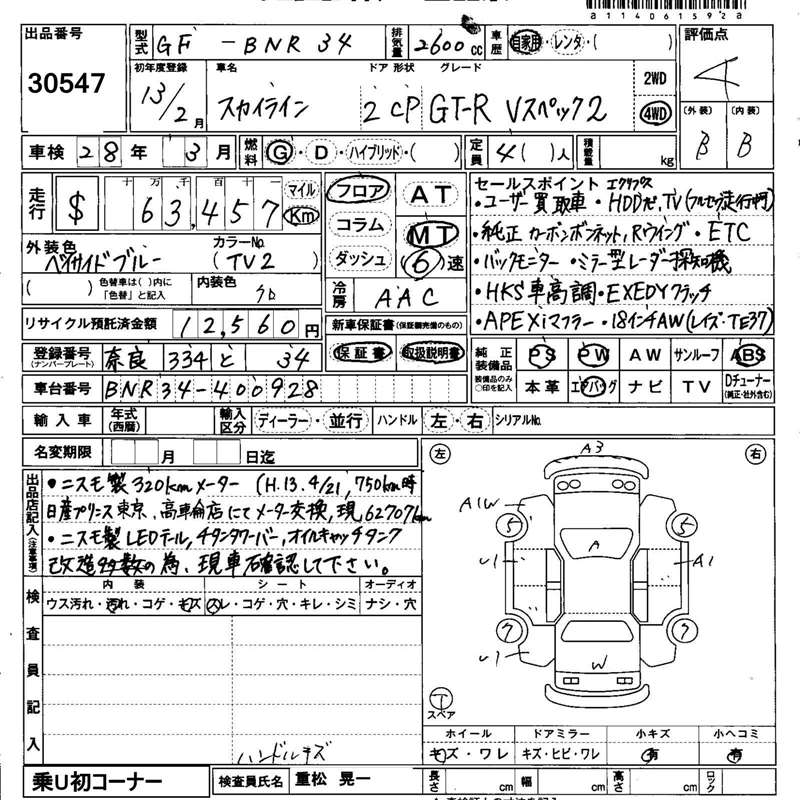 a1140615928
出品番号 型式 GF - BNR 34 排気量 2600 cc 車歴 自家用・レンタ・( ) 評価点
30547 4
初年度登録 車名 ドア 形状 グレード
13/2月 スカイライン 2 CP GT-R Vスペック2 2WD 4WD
(外装) (内装)
B B
車検 28年 3月 燃料 G・D・ハイブリッド・( ) 定員 4( )人 積載量 kg
走行 $ 十 万 千 百 十 一 63,457 マイル Km
フロア AT
コラム MT
ダッシュ (6)速
冷房 AAC
外装色 カラーNo.
ベイサイドブルー (TV2)
( ) 色替車は( )内に「色替」と記入 内装色
リサイクル預託済金額 12,560円
新車保証書(保証継続完備のもの)
保証書 取扱説明書
セールスポイント エクリプス
・ユーザー買取車・HDDナビ,TV(フルセグ走行中可)
・純正カーボンボンネット,Rウイング・ETC
・バックモニター・ミラー型レーダー探知機
・HKS車高調・EXEDYクラッチ
・APEXiマフラー・18インチAW(レイズ・TE37)
登録番号(ナンバープレート) 奈良 334 と 34
純正装備品 PS PW AW サンルーフ ABS
装備品のみ○印を記入 本革 エアバッグ ナビ TV Dチューナー(純正・社外含む)
車台番号 BNR34-400928
輸入車 年式(西暦) 輸入区分 ディーラー・並行 ハンドル 左・右 シリアルNo.
名変期限 月 日迄
出品店記入(注意事項)
●ニスモ製320kmメーター(H.13.4/21,750km時
日産プリンス東京、高車輪店にてメーター交換,現62707km
●ニスモ製LEDテール,チタンタワーバー,オイルキャッチタンク
改造多数の為、現車確認して下さい。
検査員記入
内装 シート オーディオ
ウス汚れ・汚れ・コゲ・キズ スレ・コゲ・穴・キレ・シミ ナシ・穴
ハンドルキズ
左 右
A3
A1W
5 5
U1 A A1
7 7
U1 W
T
スペア
ホイール ドアミラー 小キズ 小ヘコミ
キズ・ワレ キズ・ヒビ・ワレ 有 有
乗U初コーナー 検査員氏名 重松 晃一 長さ cm 幅 cm 高さ cm ロック